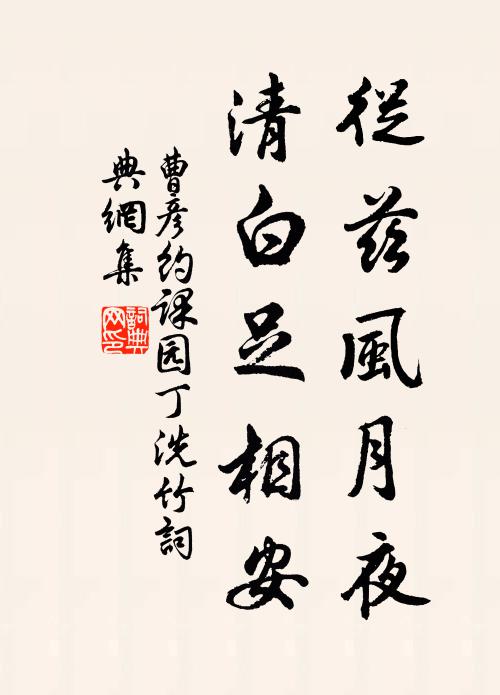 從茲風月夜
清白足相安
曹彦約課园丁洗竹詞
典網集
詞典网印